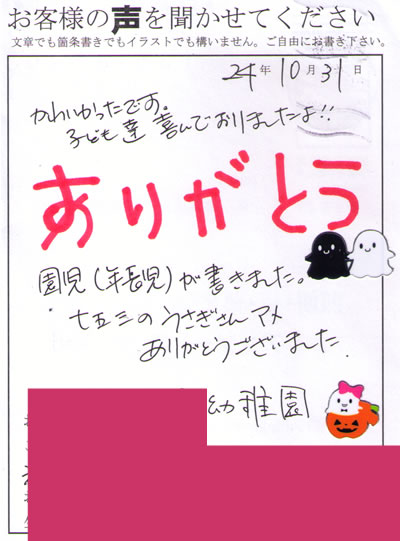 お客様の声を聞かせてください
文章でも箇条書きでもイラストでも構いません。ご自由にお書き下さい。
24年10月31日
かわいかったです。
子ども達 喜んでおりましたよ!!
ありがとう
園児(年長児)が書きました。
七五三のうさぎさんアメ
ありがとうございました
幼稚園